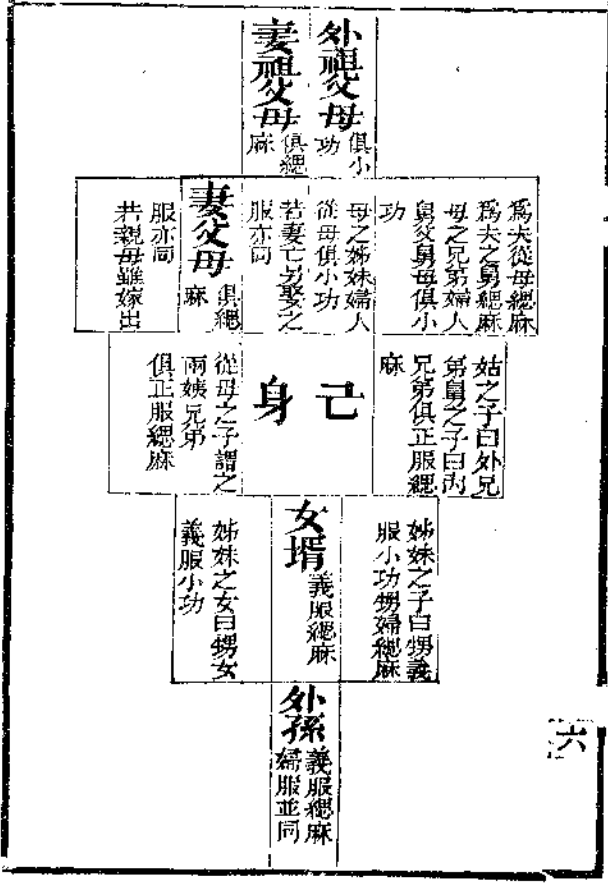 外祖父母
俱小
功
妻祖父母
俱緦
麻
爲夫從母緦麻
爲夫之舅緦麻
母之兄弟婦人
舅父舅母俱小
功
母之姊妹婦人
從母俱小功
若妻亡另娶之
服亦同
妻父母
俱緦
麻
服亦同
若親母雖嫁出
姑之子曰外兄
弟舅之子曰內
兄弟俱正服緦
麻
己
身
從母之子謂之
兩姨兄弟
俱正服緦麻
姊妹之子曰甥義
服小功甥婦緦麻
女壻
義服緦麻
姊妹之女曰甥女
義服小功
外孫
義服緦麻
婦服並同
六